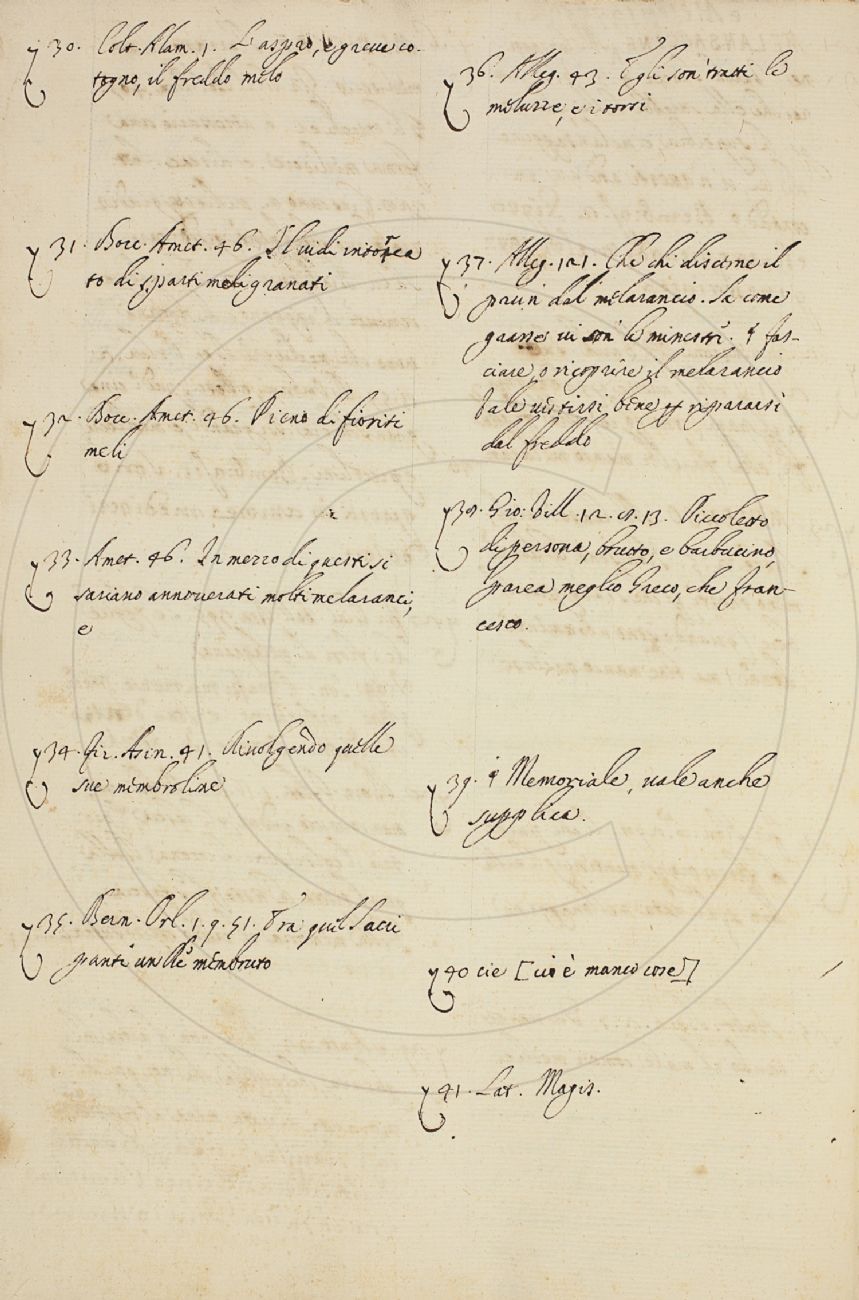 30. Colt. Alam. 1. L'aspro, e greue co-
togno, il freddo melo
31. Bocc. Amet. 46. Il uidi intornea
to di sparti meli granati
32. Bocc. Amet. 46. Pieno di fioriti
meli
33. Amet. 46. In mezzo di questi si
sariano annouerati molti melaranci,
e
34. Fir. Asin. 41. Riuolgendo quelle
sue membroline
35. Bern. Orl. 1. 9. 51. Tra quei Sacri
panti un Re membruto
36. Alleg. 43. Egli son' tratti le
meluzze, e i torsi
37. Alleg. 121. Che chi discerne il
prun dal melarancio. Sa come
grasse ui son le minestre. ¶ fas-
ciare, o ricoprire il melarancio
Vale uestirsi bene per ripararsi
dal freddo
38. Gio: Vill. 12. cs. 13. Piccoletto
di persona, brutto, e barbucino,
parea meglio Greco, che fran-
cesco.
39. ¶ Memoriale, uale anche
supplica.
40 cie [cioè manco cose]
41. Lat. Magis.